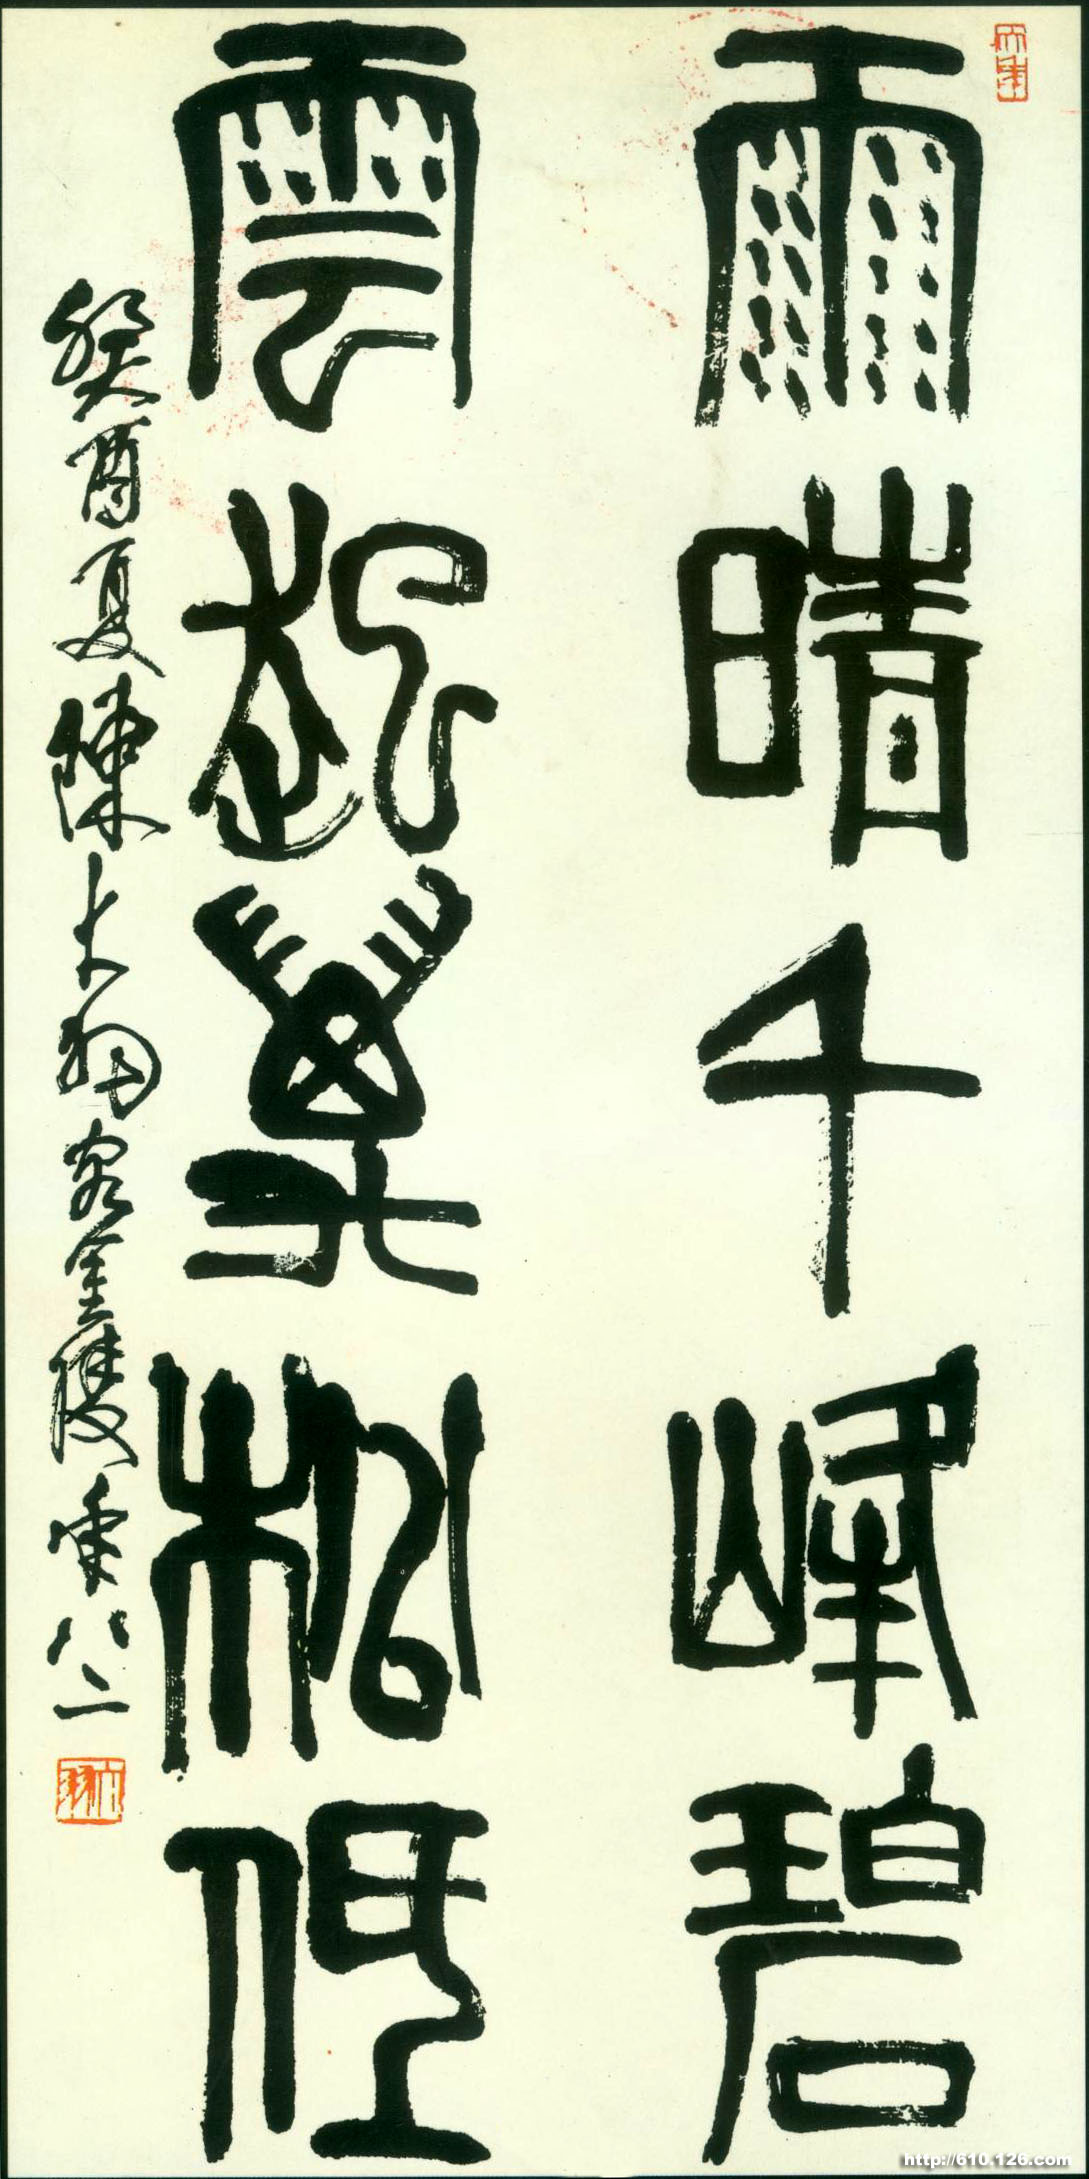 雨晴千峰碧
雲起萬松低
癸酉夏陳大羽客金陵年八二
大羽
http://610.126.com